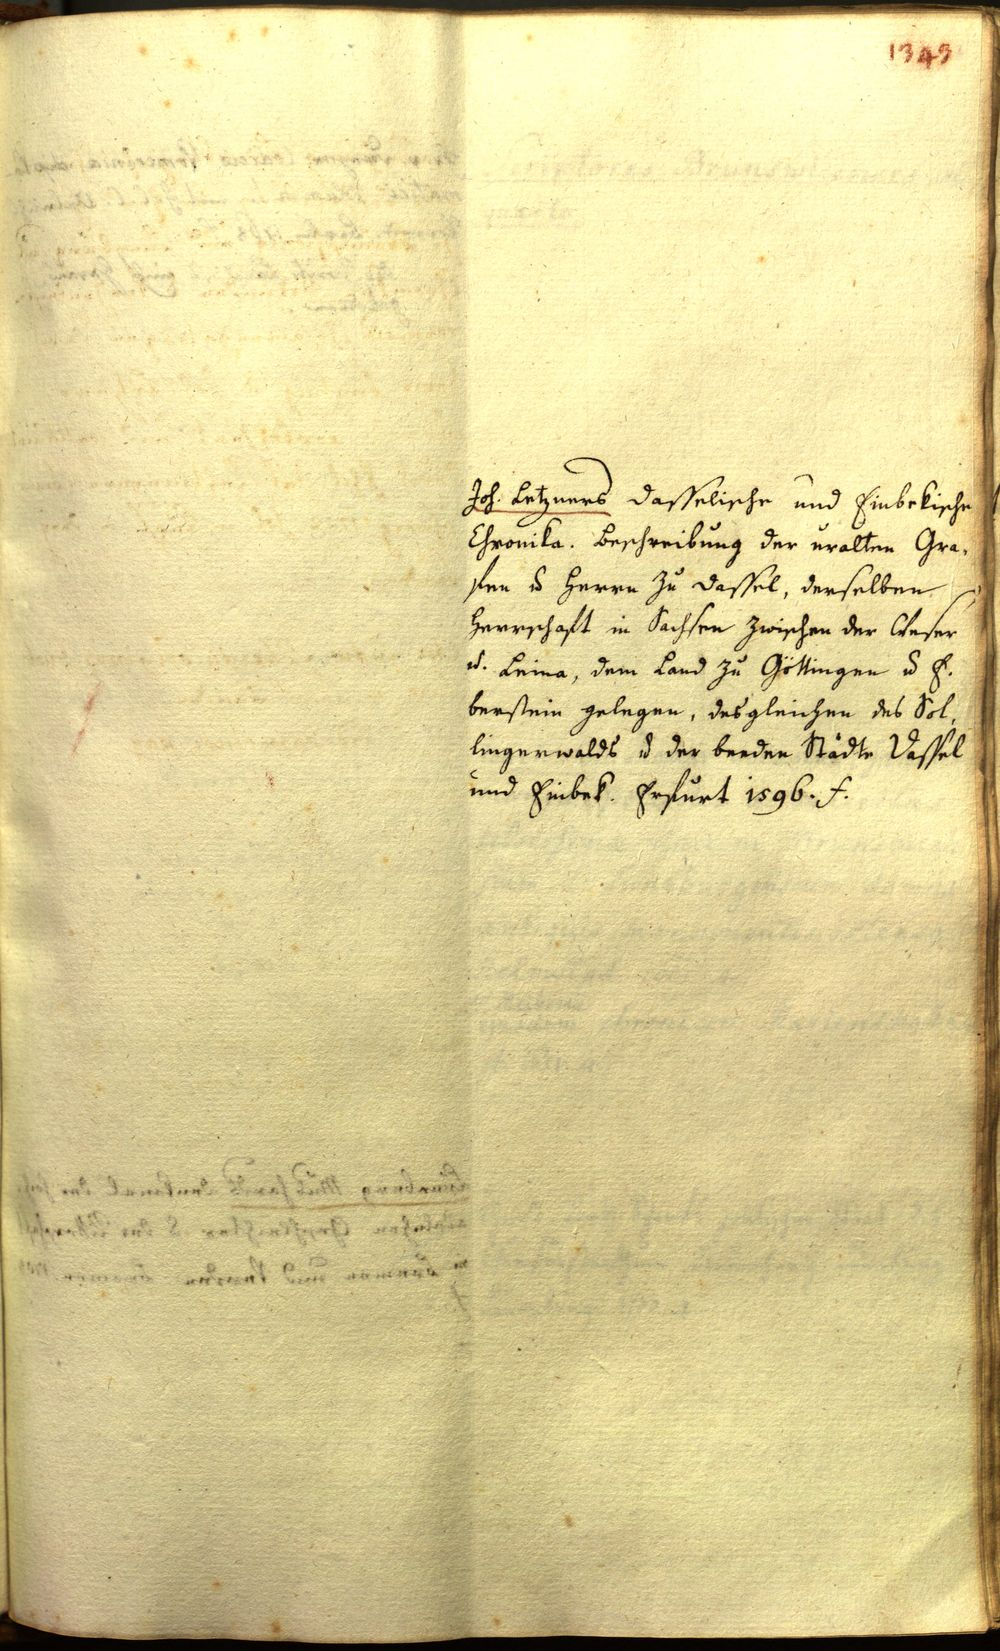 1343
Joh. Letzners Dasselische und Einbekische
Chronika. Beschreibung der uralten Gra-
fen u Herrn zu Dassel, derselben
Herrschaft in Sachsen zwischen der Weser
u. Leina, dem Land zu Göttingen u E-
berstein gelegen, desgleichen des Sol-
lingerwalds u der beeden Städte Dassel
und Einbek. Erfurt 1596. f.